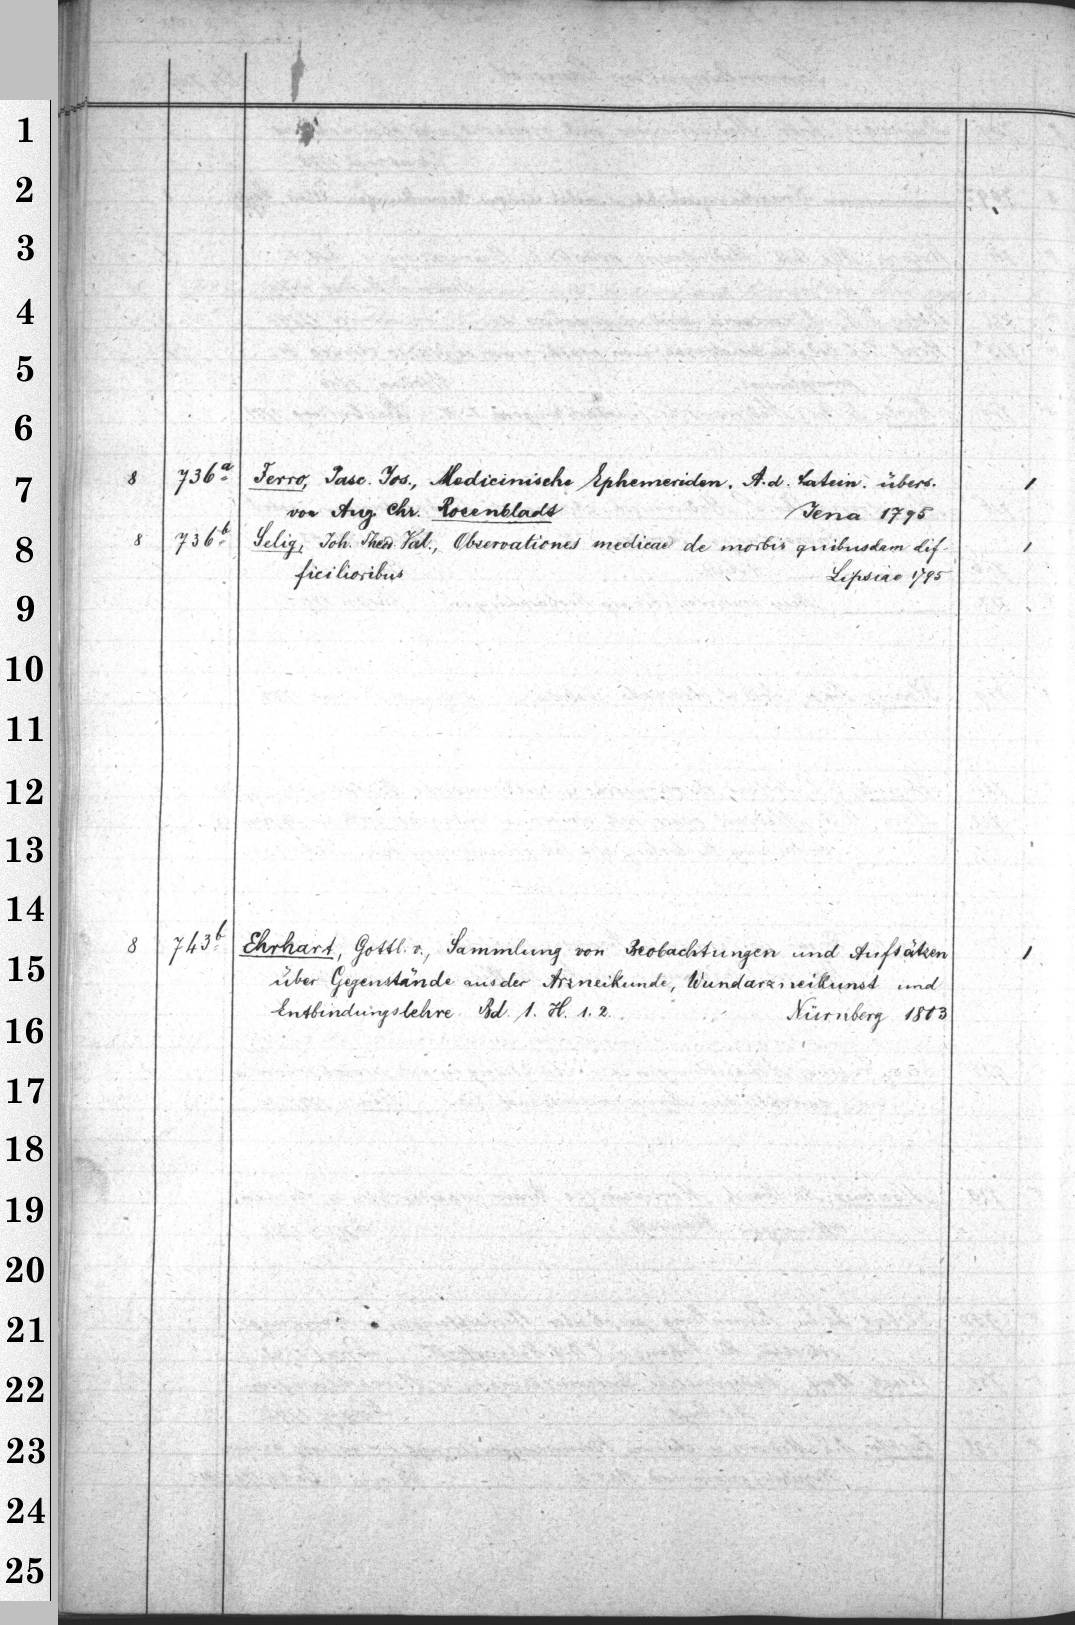 1
2
3
4
5
6
7
8 736a. Ferro, Pasc. Jos., Medicinische Ephemeriden. A. d. Latein. übers. 1
von Aug. Chr. Rosenblads Jena 1795
8
8 736b. Selig, Joh. Theod. Val., Observationes medicae de morbis quibusdam dif- 1
ficilioribus Lipsiae 1795
9
10
11
12
13
14
8 743b. Ehrhart, Gottl. v., Sammlung von Beobachtungen und Aufsätzen 1
15
über Gegenstände aus der Arzneikunde, Wundarzneikunst und
Entbindungslehre Bd. 1. H. 1. 2. Nürnberg 1803
16
17
18
19
20
21
22
23
24
25